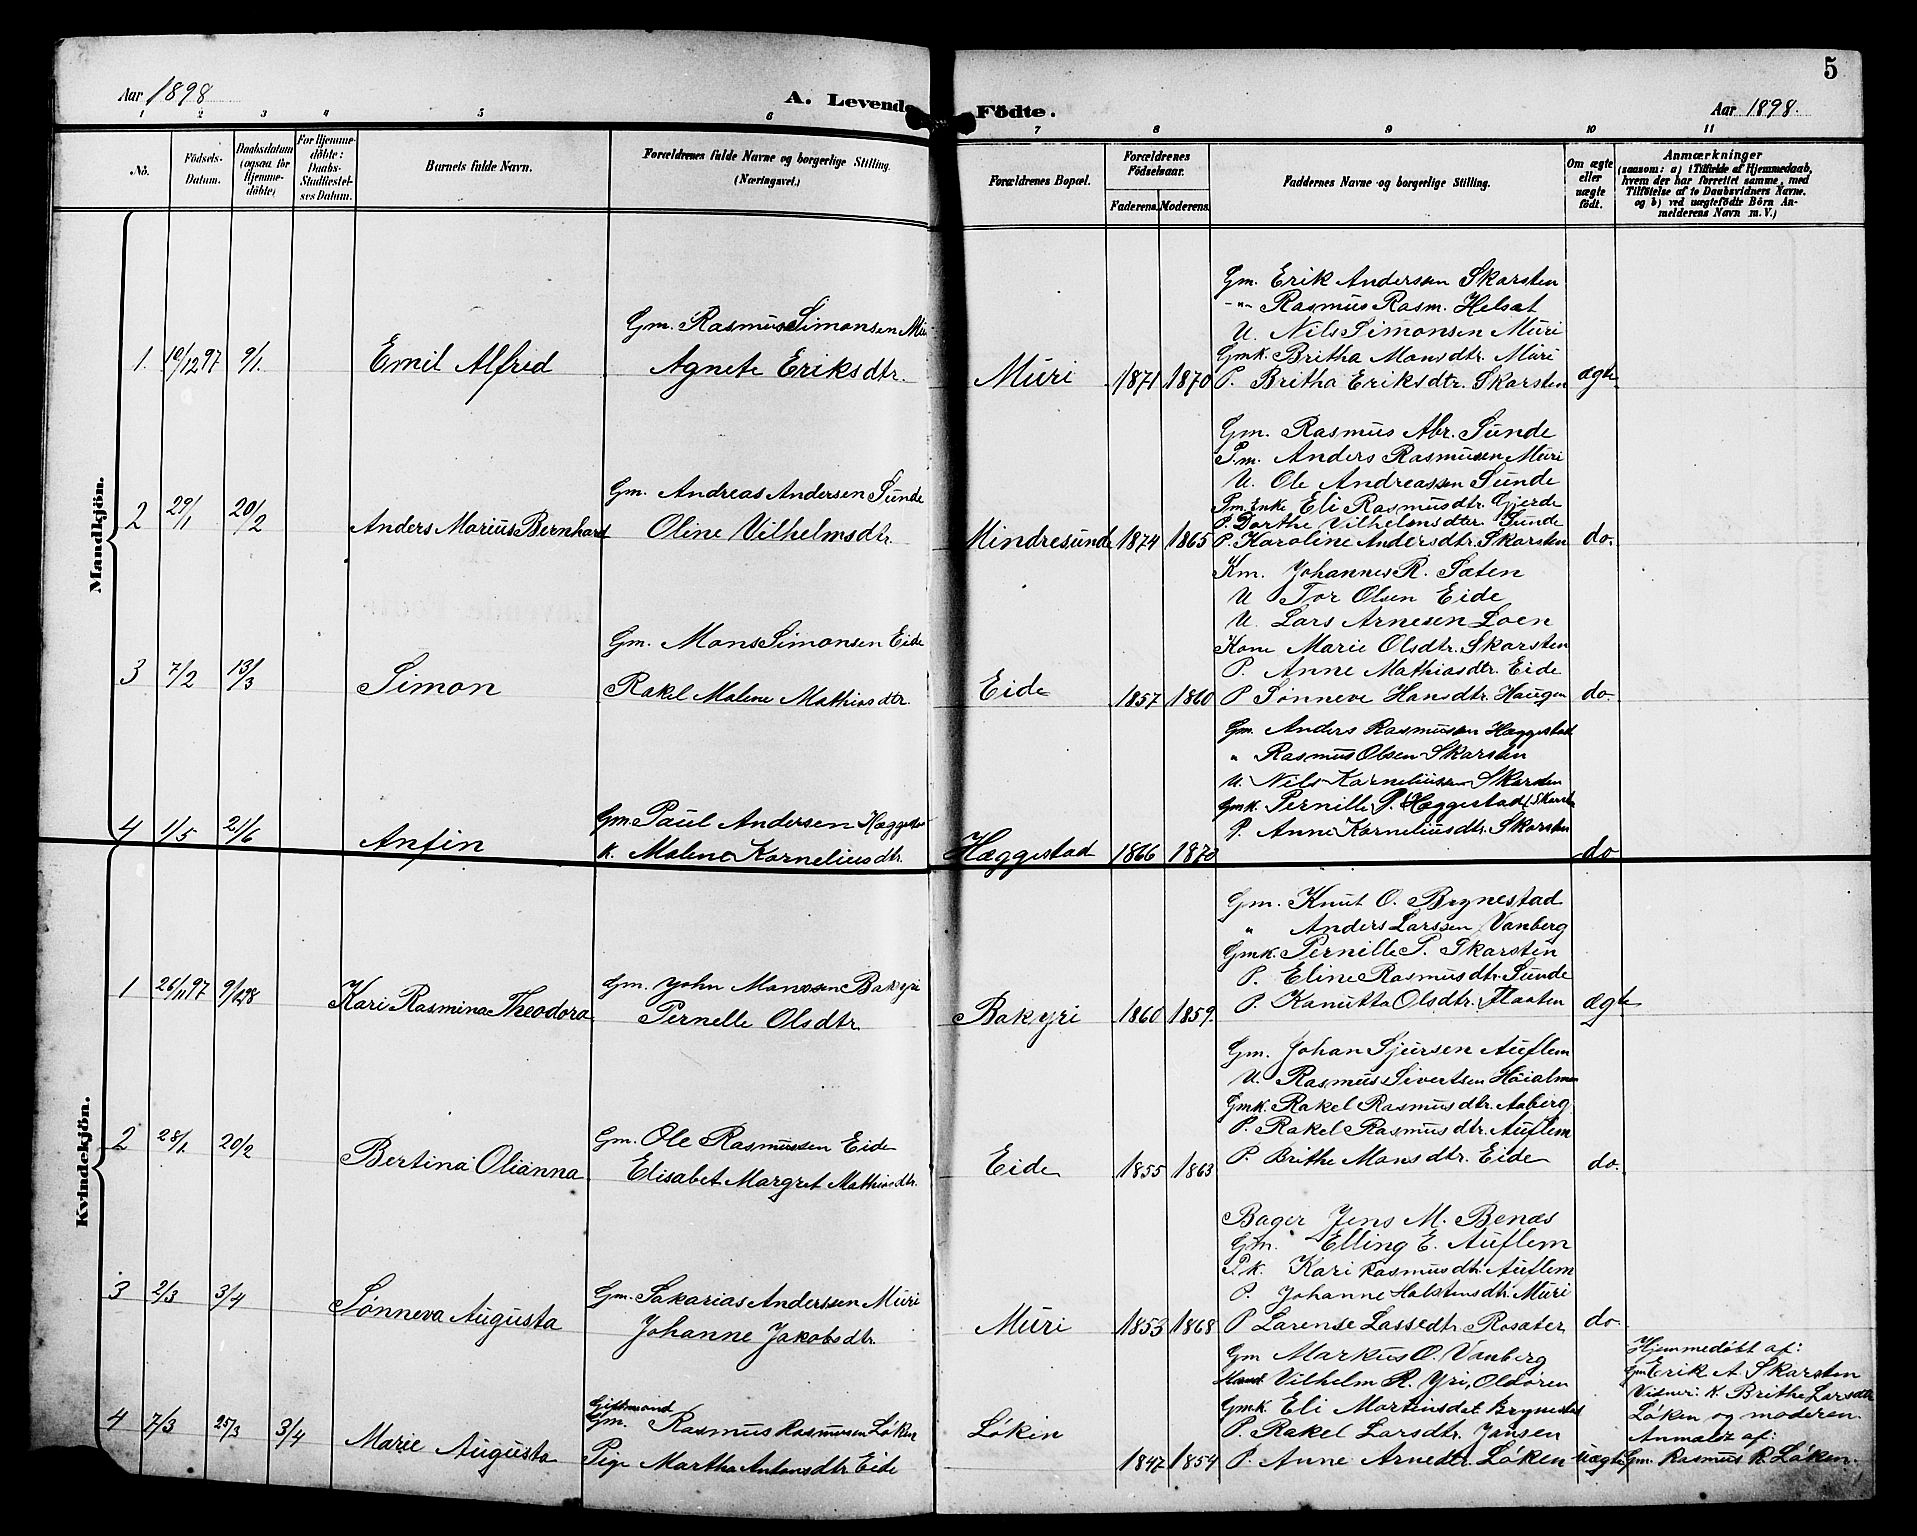 5
Aar 1898
A. Levende Födte.
Aar 1898.
1 2 3 4 5 6 7 8 9 10 11
No.
Födsels-Datum.
Daabsdatum (ogsaa for Hjemme-döbte)
For Hjemme-döbte: Daabs-Stadfæstel-ses Datum.
Barnets fulde Navn.
Forældrenes fulde Navne og borgerlige Stilling. (Næringsvei.)
Forældrenes Bopæl.
Forældrenes Födselsaar.
Faderens. Moderens.
Faddernes Navne og borgerlige Stilling.
Om ægte eller uægte födt.
Anmærkninger
(saasom: a) i Tilfælde af Hjemmedaab,
hvem der har forrettet samme, med
Tilföielse af to Daabsvidners Navne.
og b) ved uægtefödte Börn An-
melderens Navn m. V.)
Mandkjön.
1. 19/12 97 9/1. Emil Alfred
Gm. Rasmus Simonsen Muri
Agnete Eriksdtr.
Muri 1871 1870
Gm. Erik Andersen Skarsten
-"- Rasmus Rasm. Helset
U. Nils Simonsen Muri
Gmk. Britha Monsdtr. Muri
P. Britha Eriksdtr. Skarsten
ægte
2 29/1 20/2 Anders Marius Bernhard
Gm. Andreas Andersen Sunde
Oline Vilhelmsdtr.
Mindresunde 1874 1865
Gm. Rasmus Abr. Sunde
P.m. Anders Rasmussen Muri
U. Ole Andreassen Sunde
Pm. Enke Eli Rasmusdtr. Gjerde
P. Dorthe Vilhelmsdter. Sunde
P. Karoline Andersdtr. Skarsten
do.
3 7/2 13/3 Simon
Gm. Mons Simonsen Eide
Rakel Malene Mathiasdtr.
Eide 1857 1860
Km. Johannes R. Sæten
U Tor Olsen Eide
U. Lars Arnesen Loen
Kone Marie Olsdtr. Skarsten
P. Anne Mathiasdtr. Eide
P Sønneve Hansdtr. Haugen
do.
4 1/5 21/6 Anfin
Gm. Paul Andersen Hæggestad
K. Malene Korneliusdtr.
Hæggestad 1866 1870
Gm. Anders Rasmussen Hæggestad
" Rasmus Olsen Skarsten
U. Nils Korneliussen Skarsten
Gmk. Pernille P. Hæggestad (Skarsten
P. Anne Korneliusdtr. Skarsten
do
Kvindekjön.
1 26/11 97 9/1 98 Kari Rasmina Theodora
Gm. John Monssen Bakyri
Pernelle Olsdtr.
Bakyri 1860 1859.
Gm. Knut O. Brynestad
" Anders Larssen Vanberg
Gmk. Pernille P. Skarsten
P. Eline Rasmusdtr. Sunde
P. Kanutta Olsdtr. Flaaten
ægte
2 28/1 20/2 Bertina Olianna
Gm. Ole Rasmussen Eide
Elisabet Margret Mathiasdtr.
Eide 1855 1863
Gm. Johan Sjursen Auflem
U. Rasmus Sivertsen Høialmen
Gmk. Rakel Rasmusdtr. Aaberg
P. Rakel Rasmusdtr. Auflem
P. Brithe Monsdtr. Eide
do.
3 2/3 3/4 Sønneva Augusta
Gm. Sakarias Anderssen Muri
Johanne Jakobsdtr.
Muri 1853 1868
Bager Jens M. Benæs
Gm. Elling E. Auflem
P.k. Kari Rasmusdtr. Auflem
P. Johanne Halstensdtr. Muri
P Larense Lassedtr. Rosæter
do
4 7/3 25/3 3/4 Marie Augusta
Giftmand
Gm. Rasmus Rasmussen Løken
Pige Martha Antonsdtr. Eide
Løkin 1847 1854
Gm Markus O. Vanberg
Hand. Vilhelm R. Yri, Oldøren
Gmk. Eli Martinsdet. Brynestad
P. Rakel Larsdtr. Jansen
P. Anne Arnedtr. Løken
uægte
Hjemmedøbt af:
Gm Erik A Skarsten
Vidner: K. Brithe Larsdtr
Løken og moderen.
Anmeldt af:
Gm. Rasmus R. Løken.